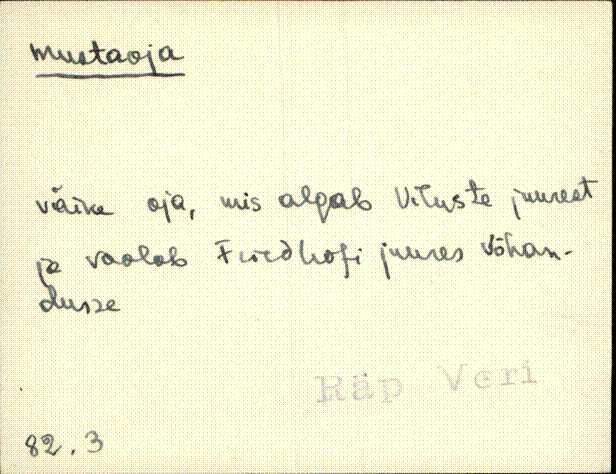 mustaoja
väike oja, mis algab Viluste juurest
ja voolab Friedhofi juures Võhan-
dusse
Räp Veri
82.3